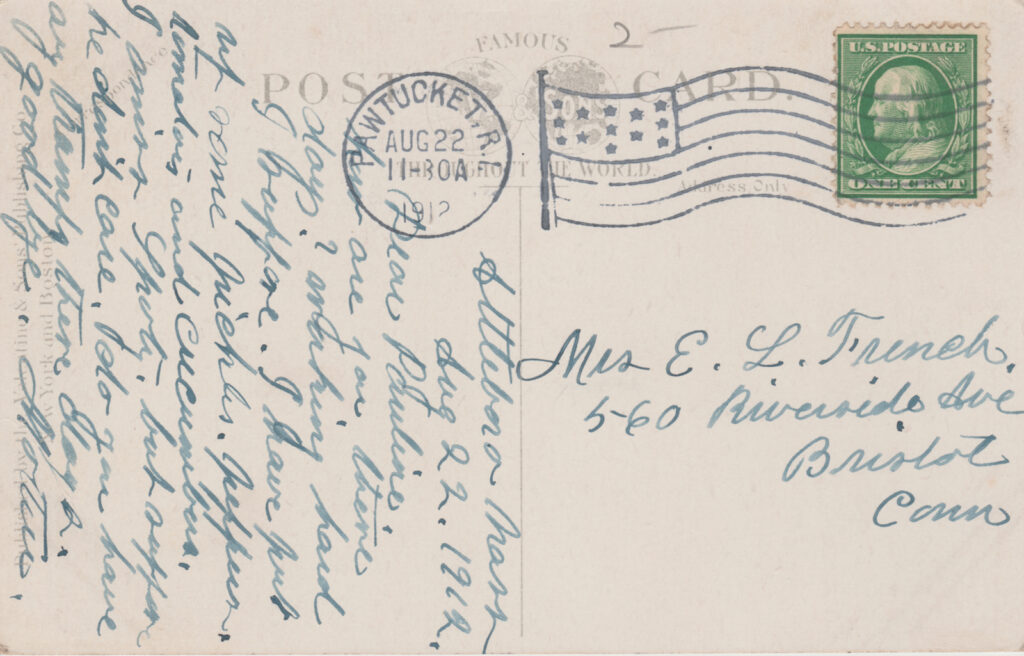 FAMOUS
POST CARD.
THROUGHOUT THE WORLD.
Address Only
2-
PAWTUCKET, R.
AUG 22
11-30A
1912
U.S. POSTAGE
ONE CENT
Attleboro Mass
Aug 22. 1912.
Dear Pauline.
How are you these
days? working hard
I suppose. I have put
up some pickles. peppers.
tomatoes and cucumbers.
I miss but suppose
he don't care. Do you have
any thump these days.
good bye. Mother.
& Sons Publishing Co.
New York and Boston
Mrs E. L. French.
560 Riverside Ave
Bristol
Conn